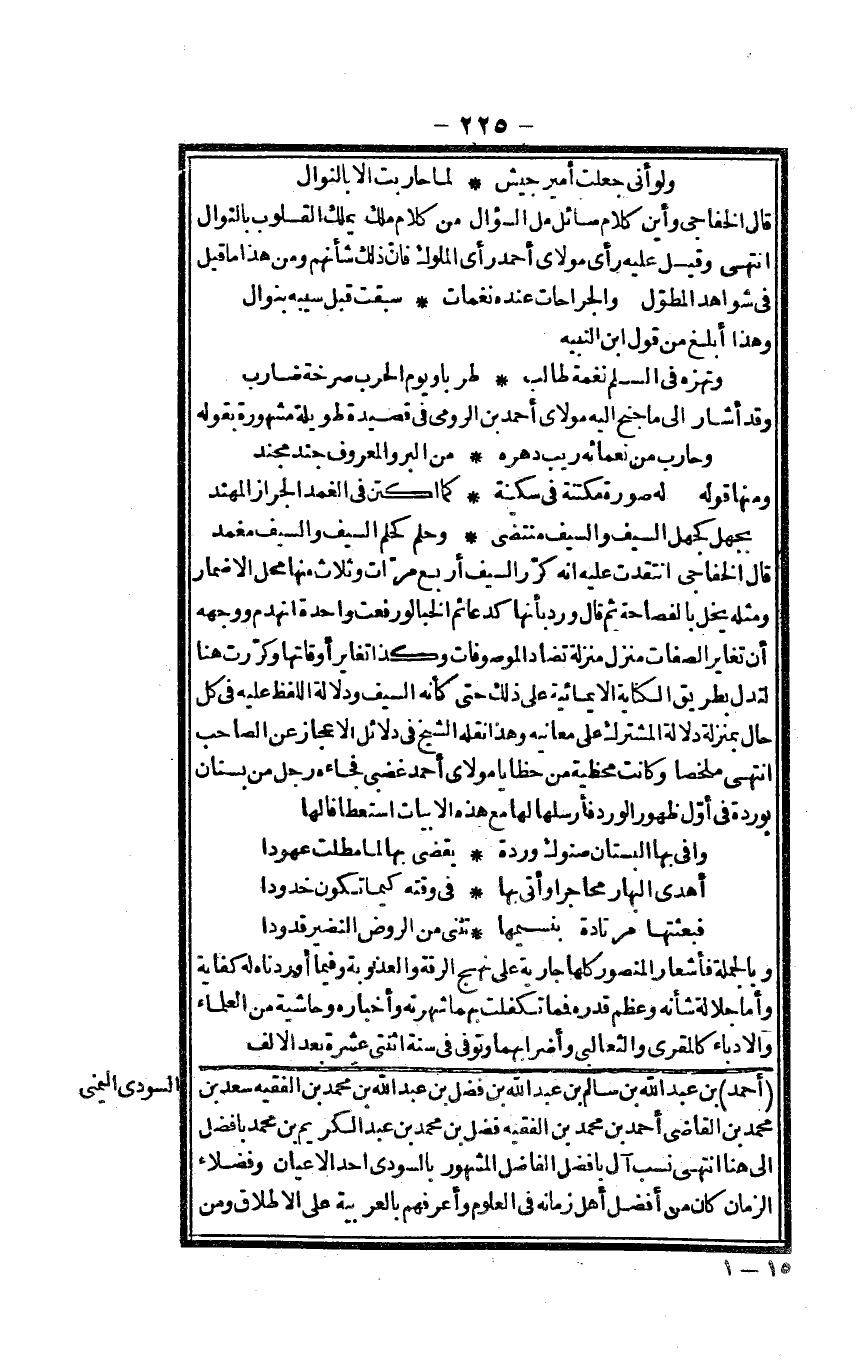 - ٢٢٥ -
ولو أنى جعلت أمير جيش * لما حاربت الا بالنوال
قال الخفاجى وأين كلام سائل مل السؤال من كلام ملك يملك القلوب بالنوال
انتهى وقيل عليه رأى مولاى أحمد رأى الملوك فان ذلك شأنهم ومن هذا ما قيل
فى شواهد المطوّل والجراحات عنده نغمات * سبقت قبل سيبه بنوال
وهذا أبلغ من قول ابن النبيه
وتهزه فى السلم نغمة طالب * طربا ويوم الحرب صرخة ضارب
وقد أشار الى ما جنح اليه مولاى أحمد بن الرومى فى قصيدة طويلة مشهورة بقوله
وحارب من نعمائه ريب دهره * من البر والمعروف جند مجند
ومنها قوله له صورة مكتنة فى سكينة * كما اكتن فى الغمد الجراز المهند
بجهل كجهل السيف والسيف منتضى * وحلم كحلم السيف والسيف مغمد
قال الخفاجى انتقدت عليه انه كرّر السيف أربع مرّات وثلاث منها محل الاضمار
ومثله يخل بالفصاحة ثم قال ورد بأنها كدعائم الخبا لو رفعت واحدة انهدم ووجهه
أن تغاير الصفات منزل منزلة تضاد الموصوفات وكذا تغاير أوقاتها وكرّرت هنا
لتدل بطريق الكناية الايمائية على ذلك حتى كأنه السيف ودلالة اللفظ عليه فى كل
حال بمنزلة دلالة المشترك على معانيه وهذا نقله الشيخ فى دلائل الاعجاز عن الصاحب
انتهى ملخصا وكانت محظية من حظايا مولاى أحمد غضبى فجاءه رجل من بستان
بوردة فى أوّل ظهور الورد فأرسلها لها مع هذه الابيات استعطافا لها
وافى بها البستان صنوك وردة * يقضى بها لما مطلت عهودا
أهدى البهار محاجرا وأتى بها * فى وقته كيما تكون خدودا
فبعثتها مرتادة بنسيمها * تثنى من الروض النضير قدودا
وبالجملة فأشعار المنصور كلها جارية على نهج الرقة والعذوبة وفيما أوردناه له كفاية
وأما جلالة شأنه وعظم قدره فما تكفلت بهما شهرته وأخباره وحاشية من العلماء
والادباء كالمقرى والثعالبى وأضرابهما وتوفى فى سنة اثنتى عشرة بعد الالف
السودى اليمنى
(أحمد) بن عبد الله بن سالم بن عبد الله بن فضل بن عبد الله بن محمد بن الفقيه سعد بن
محمد بن القاضى أحمد بن محمد بن الفقيه فضل بن محمد بن عبد الكريم بن محمد بافضل
الى هنا انتهى نسب آل بافضل الفاضل المشهور بالسودى احد الاعيان وفضلاء
الزمان كان من أفضل أهل زمانه فى العلوم وأعرفهم بالعربية على الاطلاق ومن
١٥ - ١